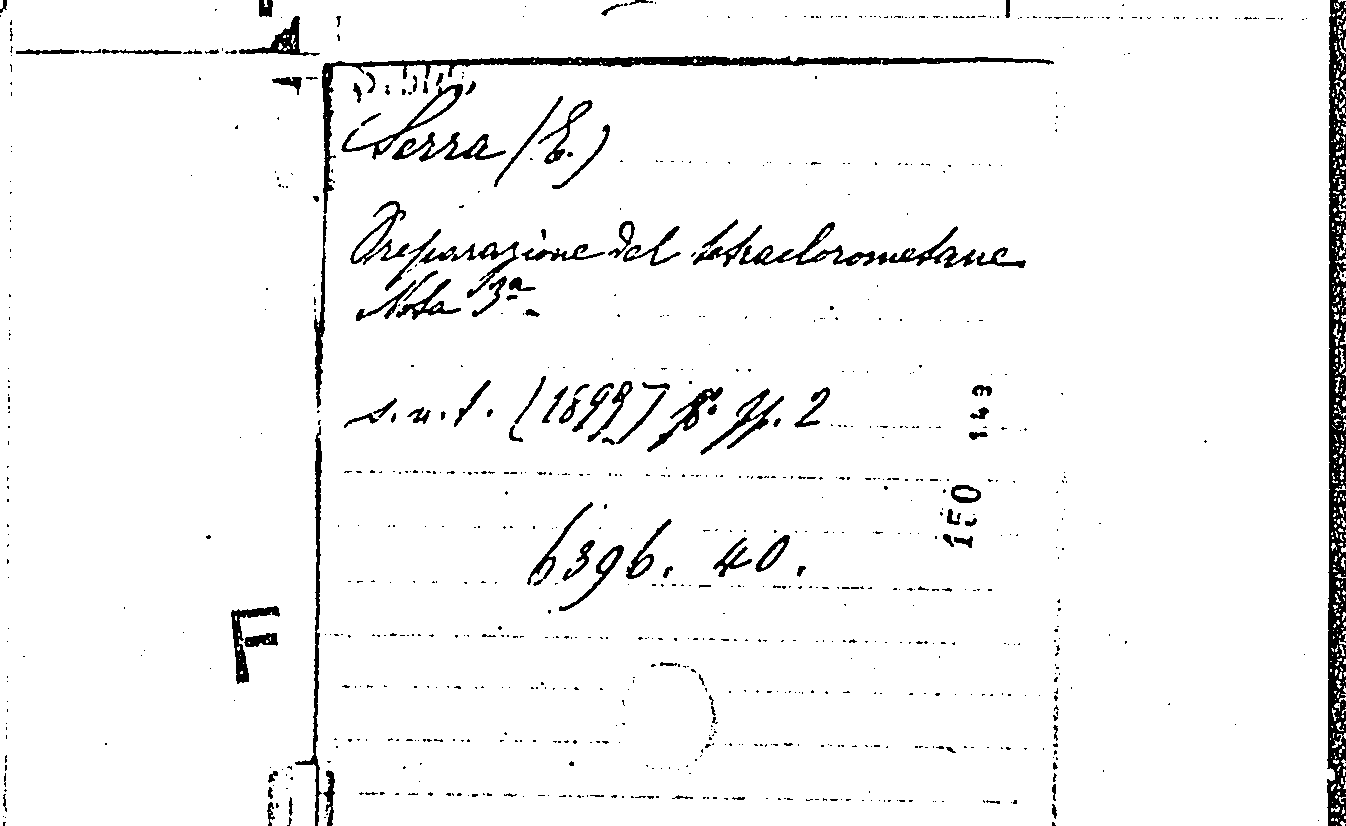 Serra (E.)
Preparazione del tetraclorometane
Nota 3ª.
s.n.t. (1899) 8º pp. 2
143
150
6396. 40.
F